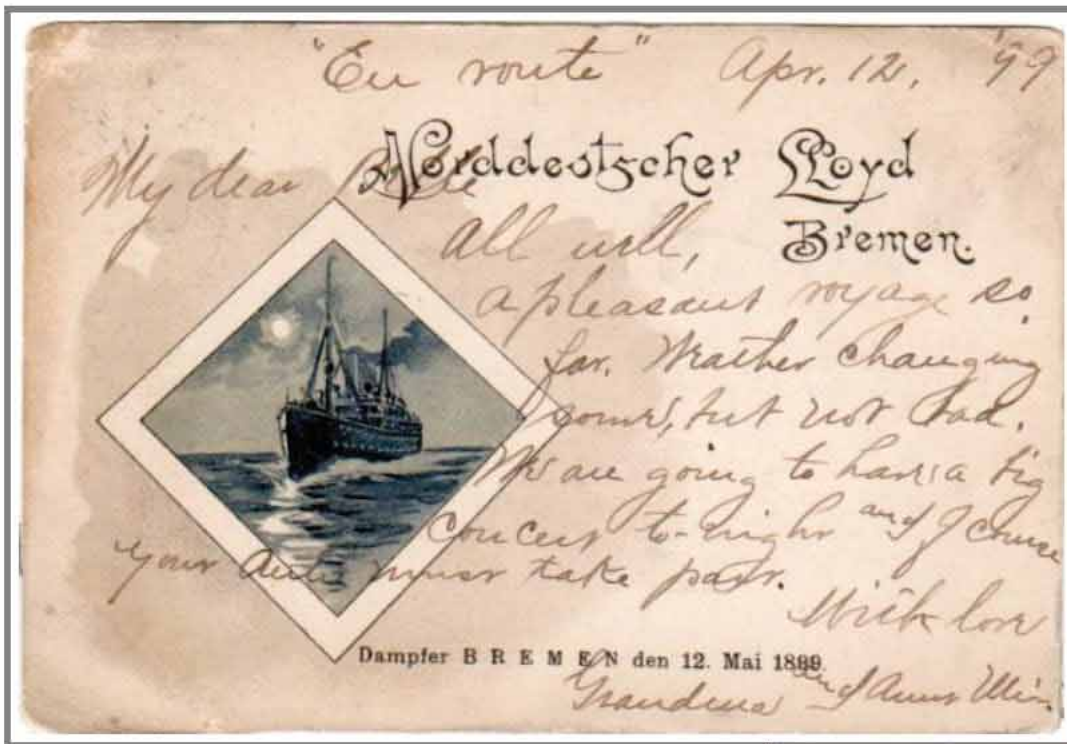 "En route" Apr. 12, '99
Norddeutscher Lloyd
Bremen.
My dear Belle
All well,
a pleasant voyage so
far. Weather changing
some, but not bad.
We are going to have a big
concert to-night and of course
your Aunt must take part.
With love
Dampfer BREMEN den 12. Mai 1899.
Grandma and Aunt Min.